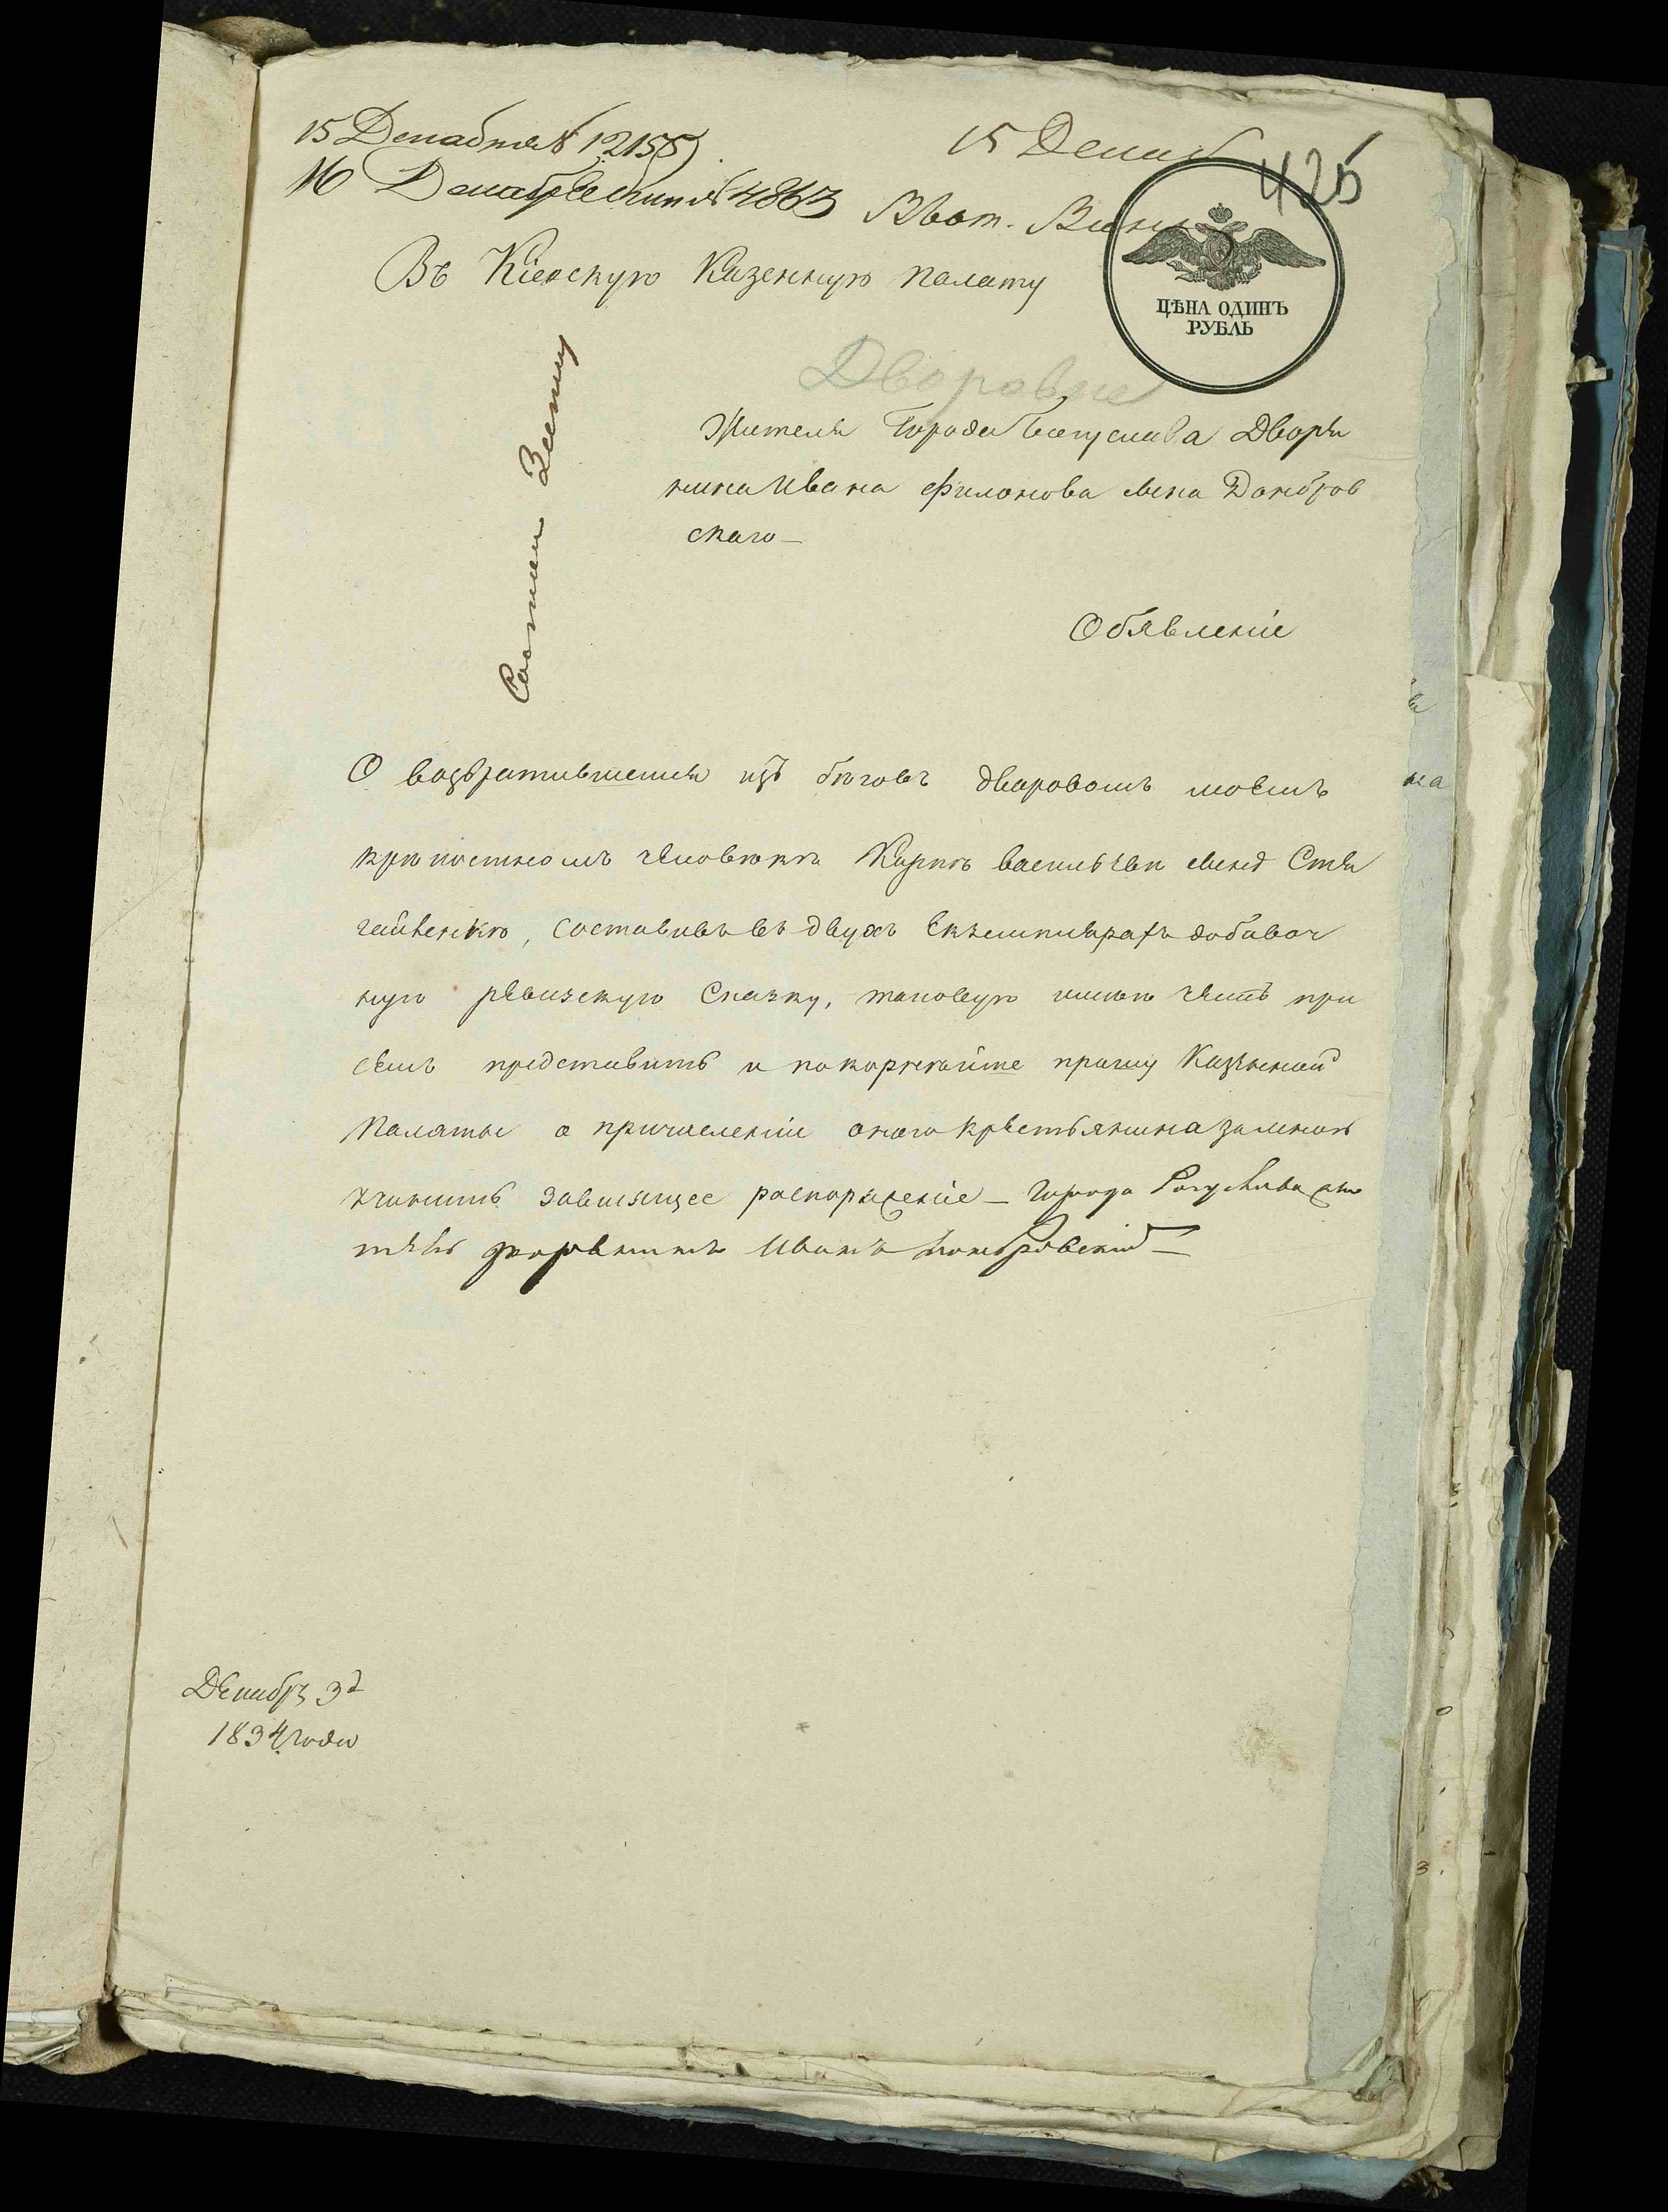 15 Декабря № 12155
15 Декаб
425
16 Декабря 4863
Въ Кіевскую Казенную палату
ЦѢНА ОДИНЪ
РУБЛЬ
Дворовые
Жителя Города Богуслава Дворя
нина Ивана Филонова сына Домбров
скаго —
Обявленіе
О возвратившемся изъ бѣговъ дворовомъ моемъ
крѣпостномъ человѣкѣ Карпѣ васильеви сынѣ
составивъ въ двухъ Екземплярахъ добавоч
ную ревизскую Сказку, таковую имѣю честь при
семъ представить и покорнѣйше прошу Казенной
Палаты о причисленіи онаго крестьянина за мною
учинить зависящее распоряженіе — Города Богуслава жи
тель дворянинъ Иванъ Домбровскій —
Декабръ 3д
1834 Года